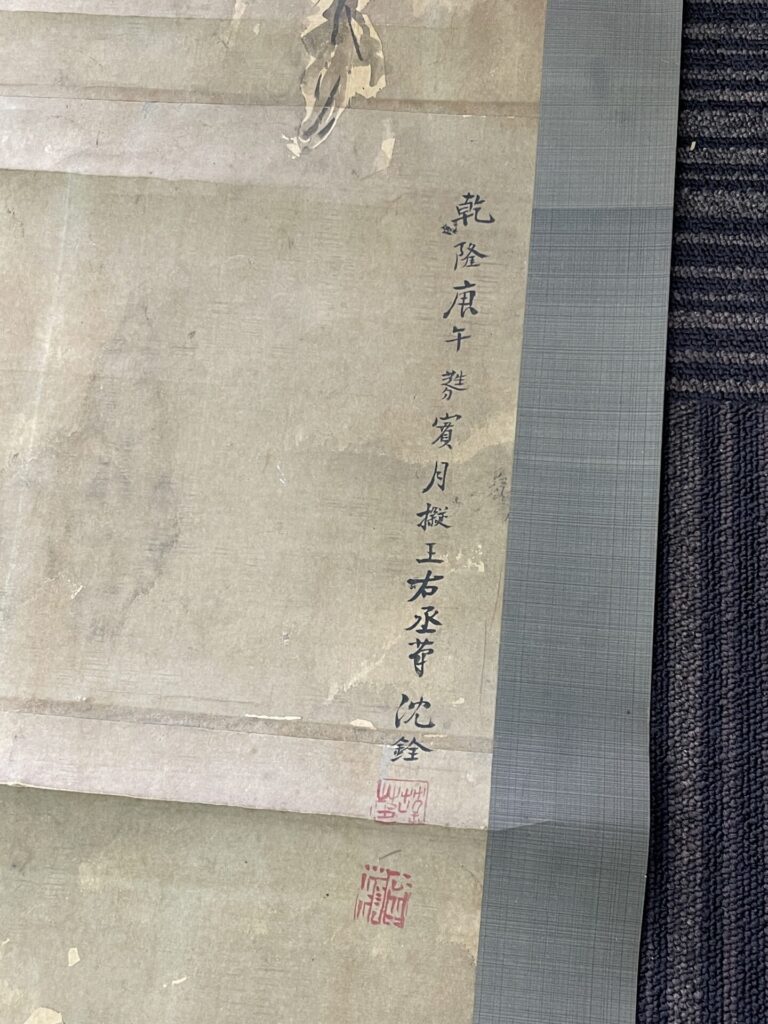 乾隆庚午蕤賓月擬王右丞筆沈銓